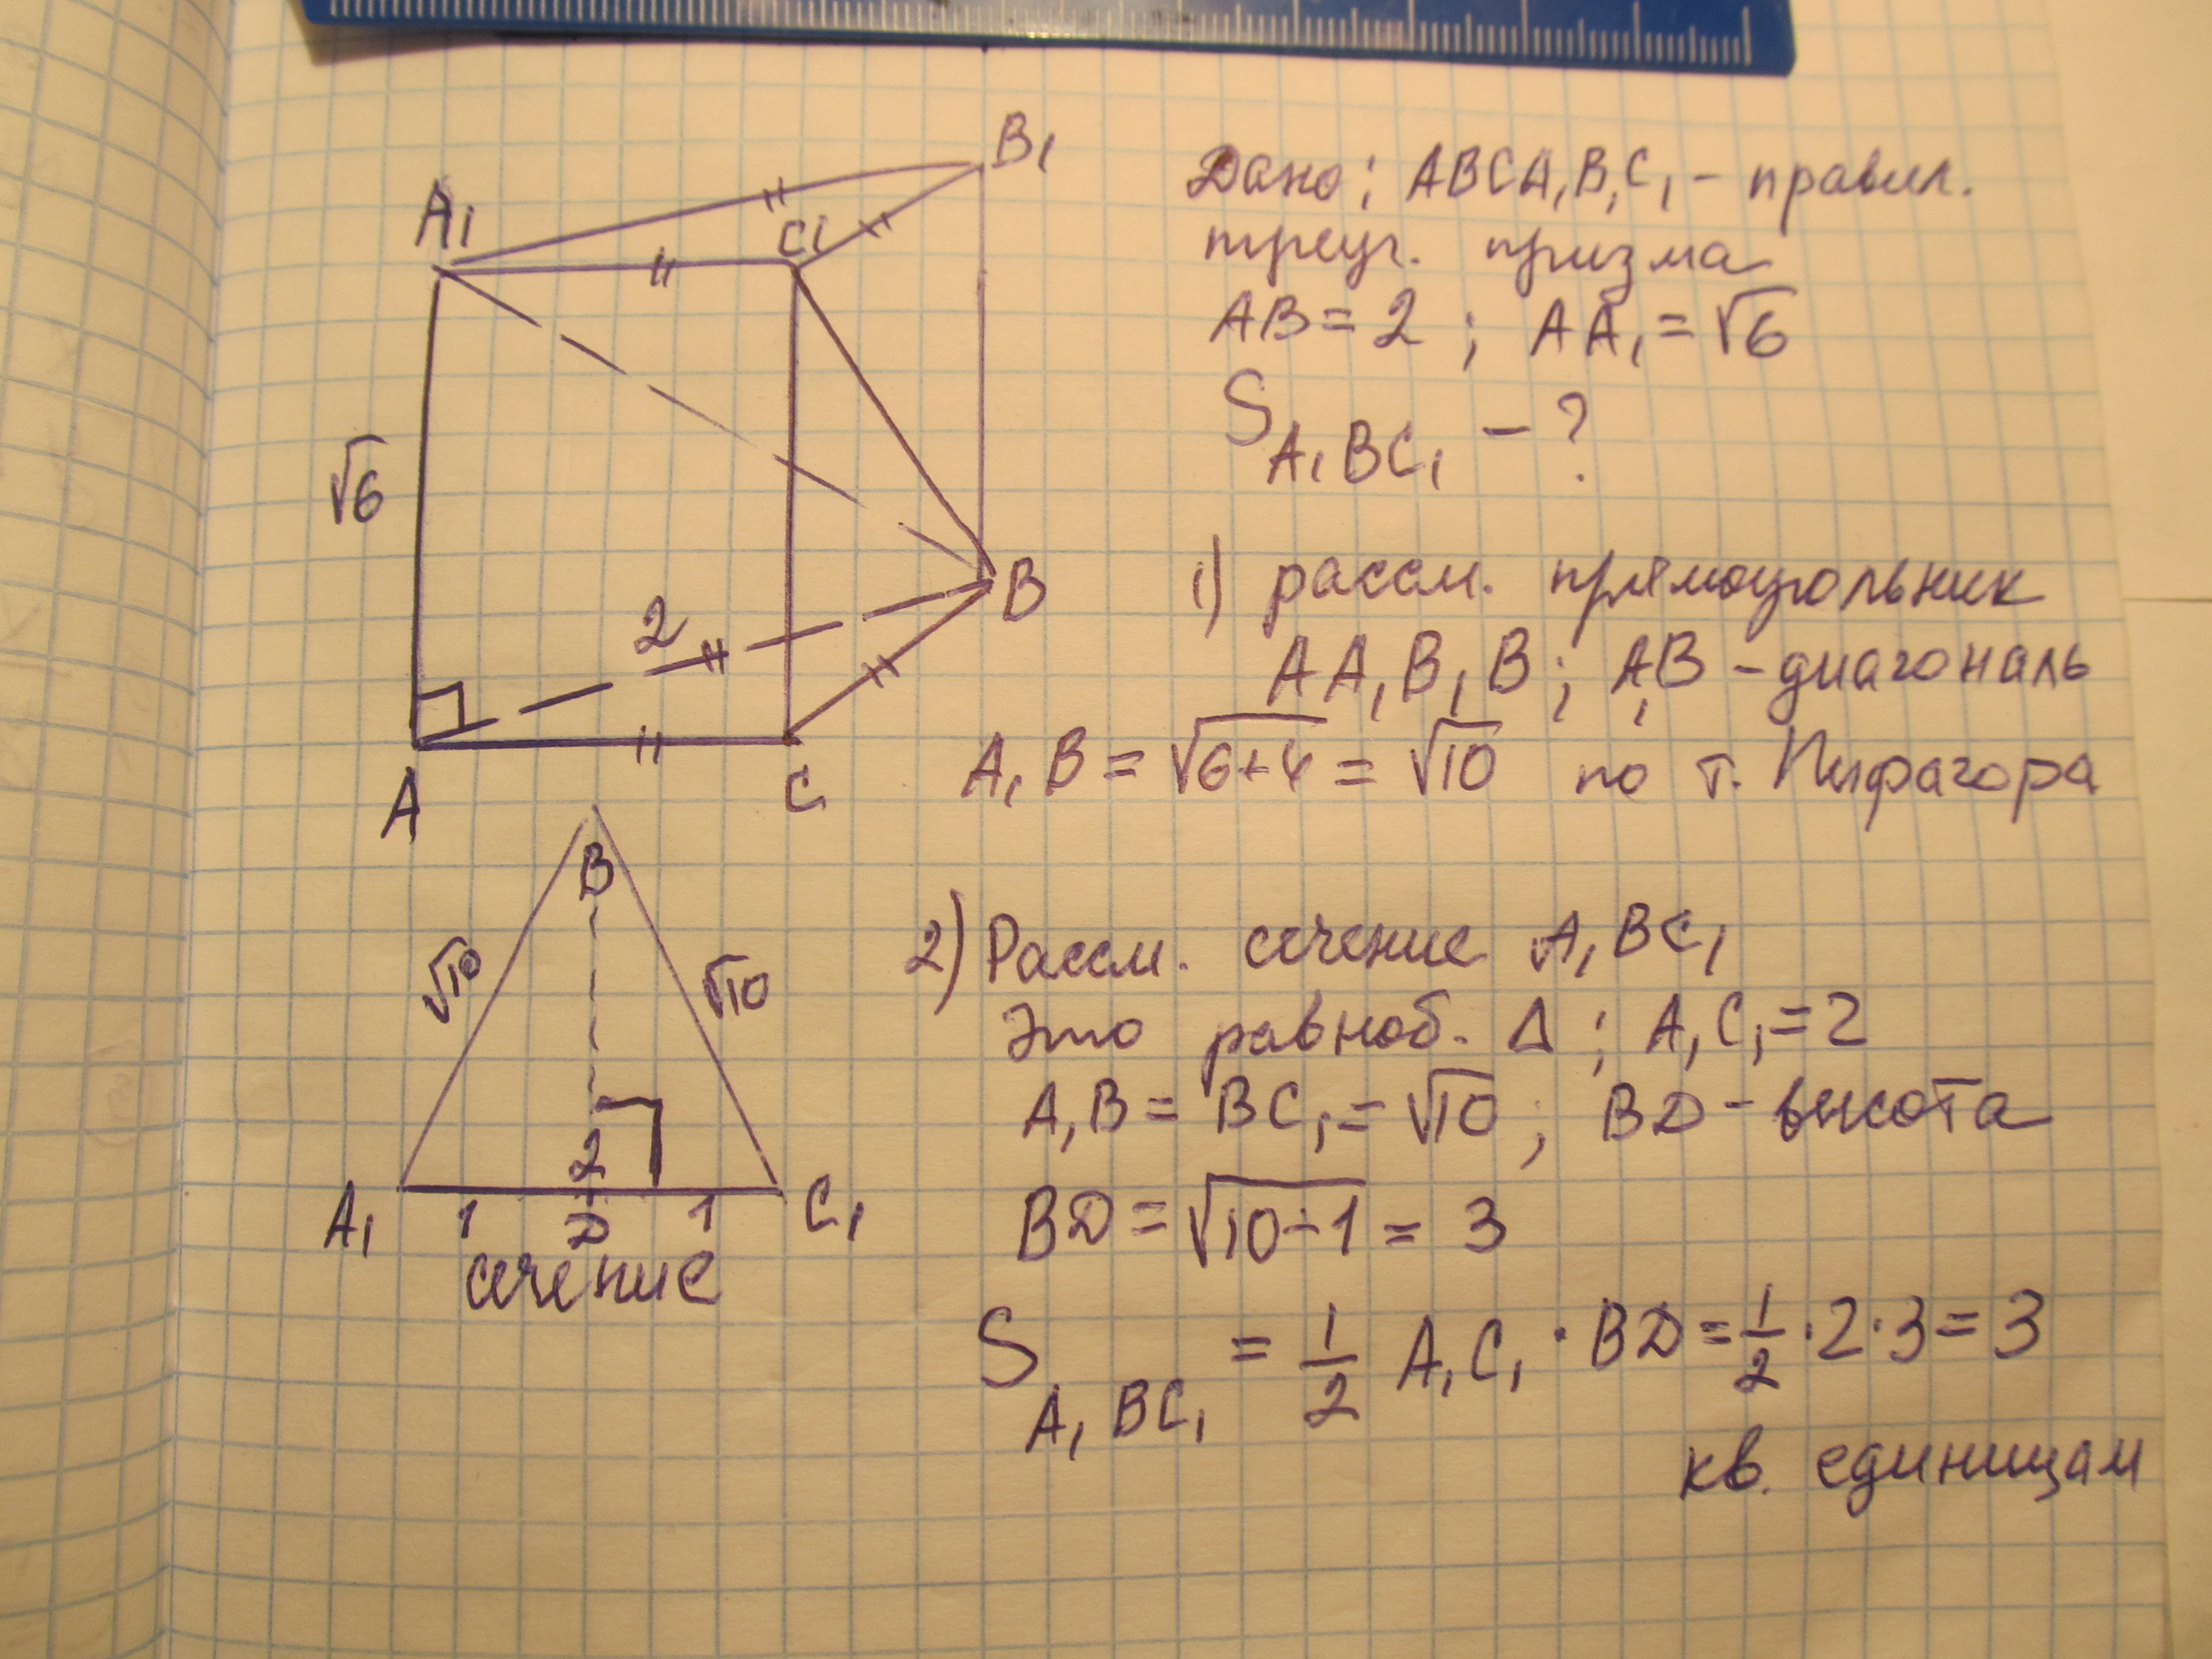 Дано: ABCA₁B₁C₁ – правил.
треуг. призма
AB = 2 ; AA₁ = √6
S A₁BC₁ – ?
A₁
C₁
B₁
√6
2
B
A
C
1) рассм. прямоугольник
AA₁B₁B ; A₁B – диагональ
A₁B = √6+4 = √10 по т. Пифагора
B
√10
√10
2
A₁
1
D
1
C₁
сечение
2) Рассм. сечение A₁BC₁
Это равноб. Δ ; A₁C₁ = 2
A₁B = BC₁ = √10 ; BD – высота
BD = √10–1 = 3
S A₁BC₁ = 1/2 A₁C₁ · BD = 1/2 · 2 · 3 = 3
кв. единицам